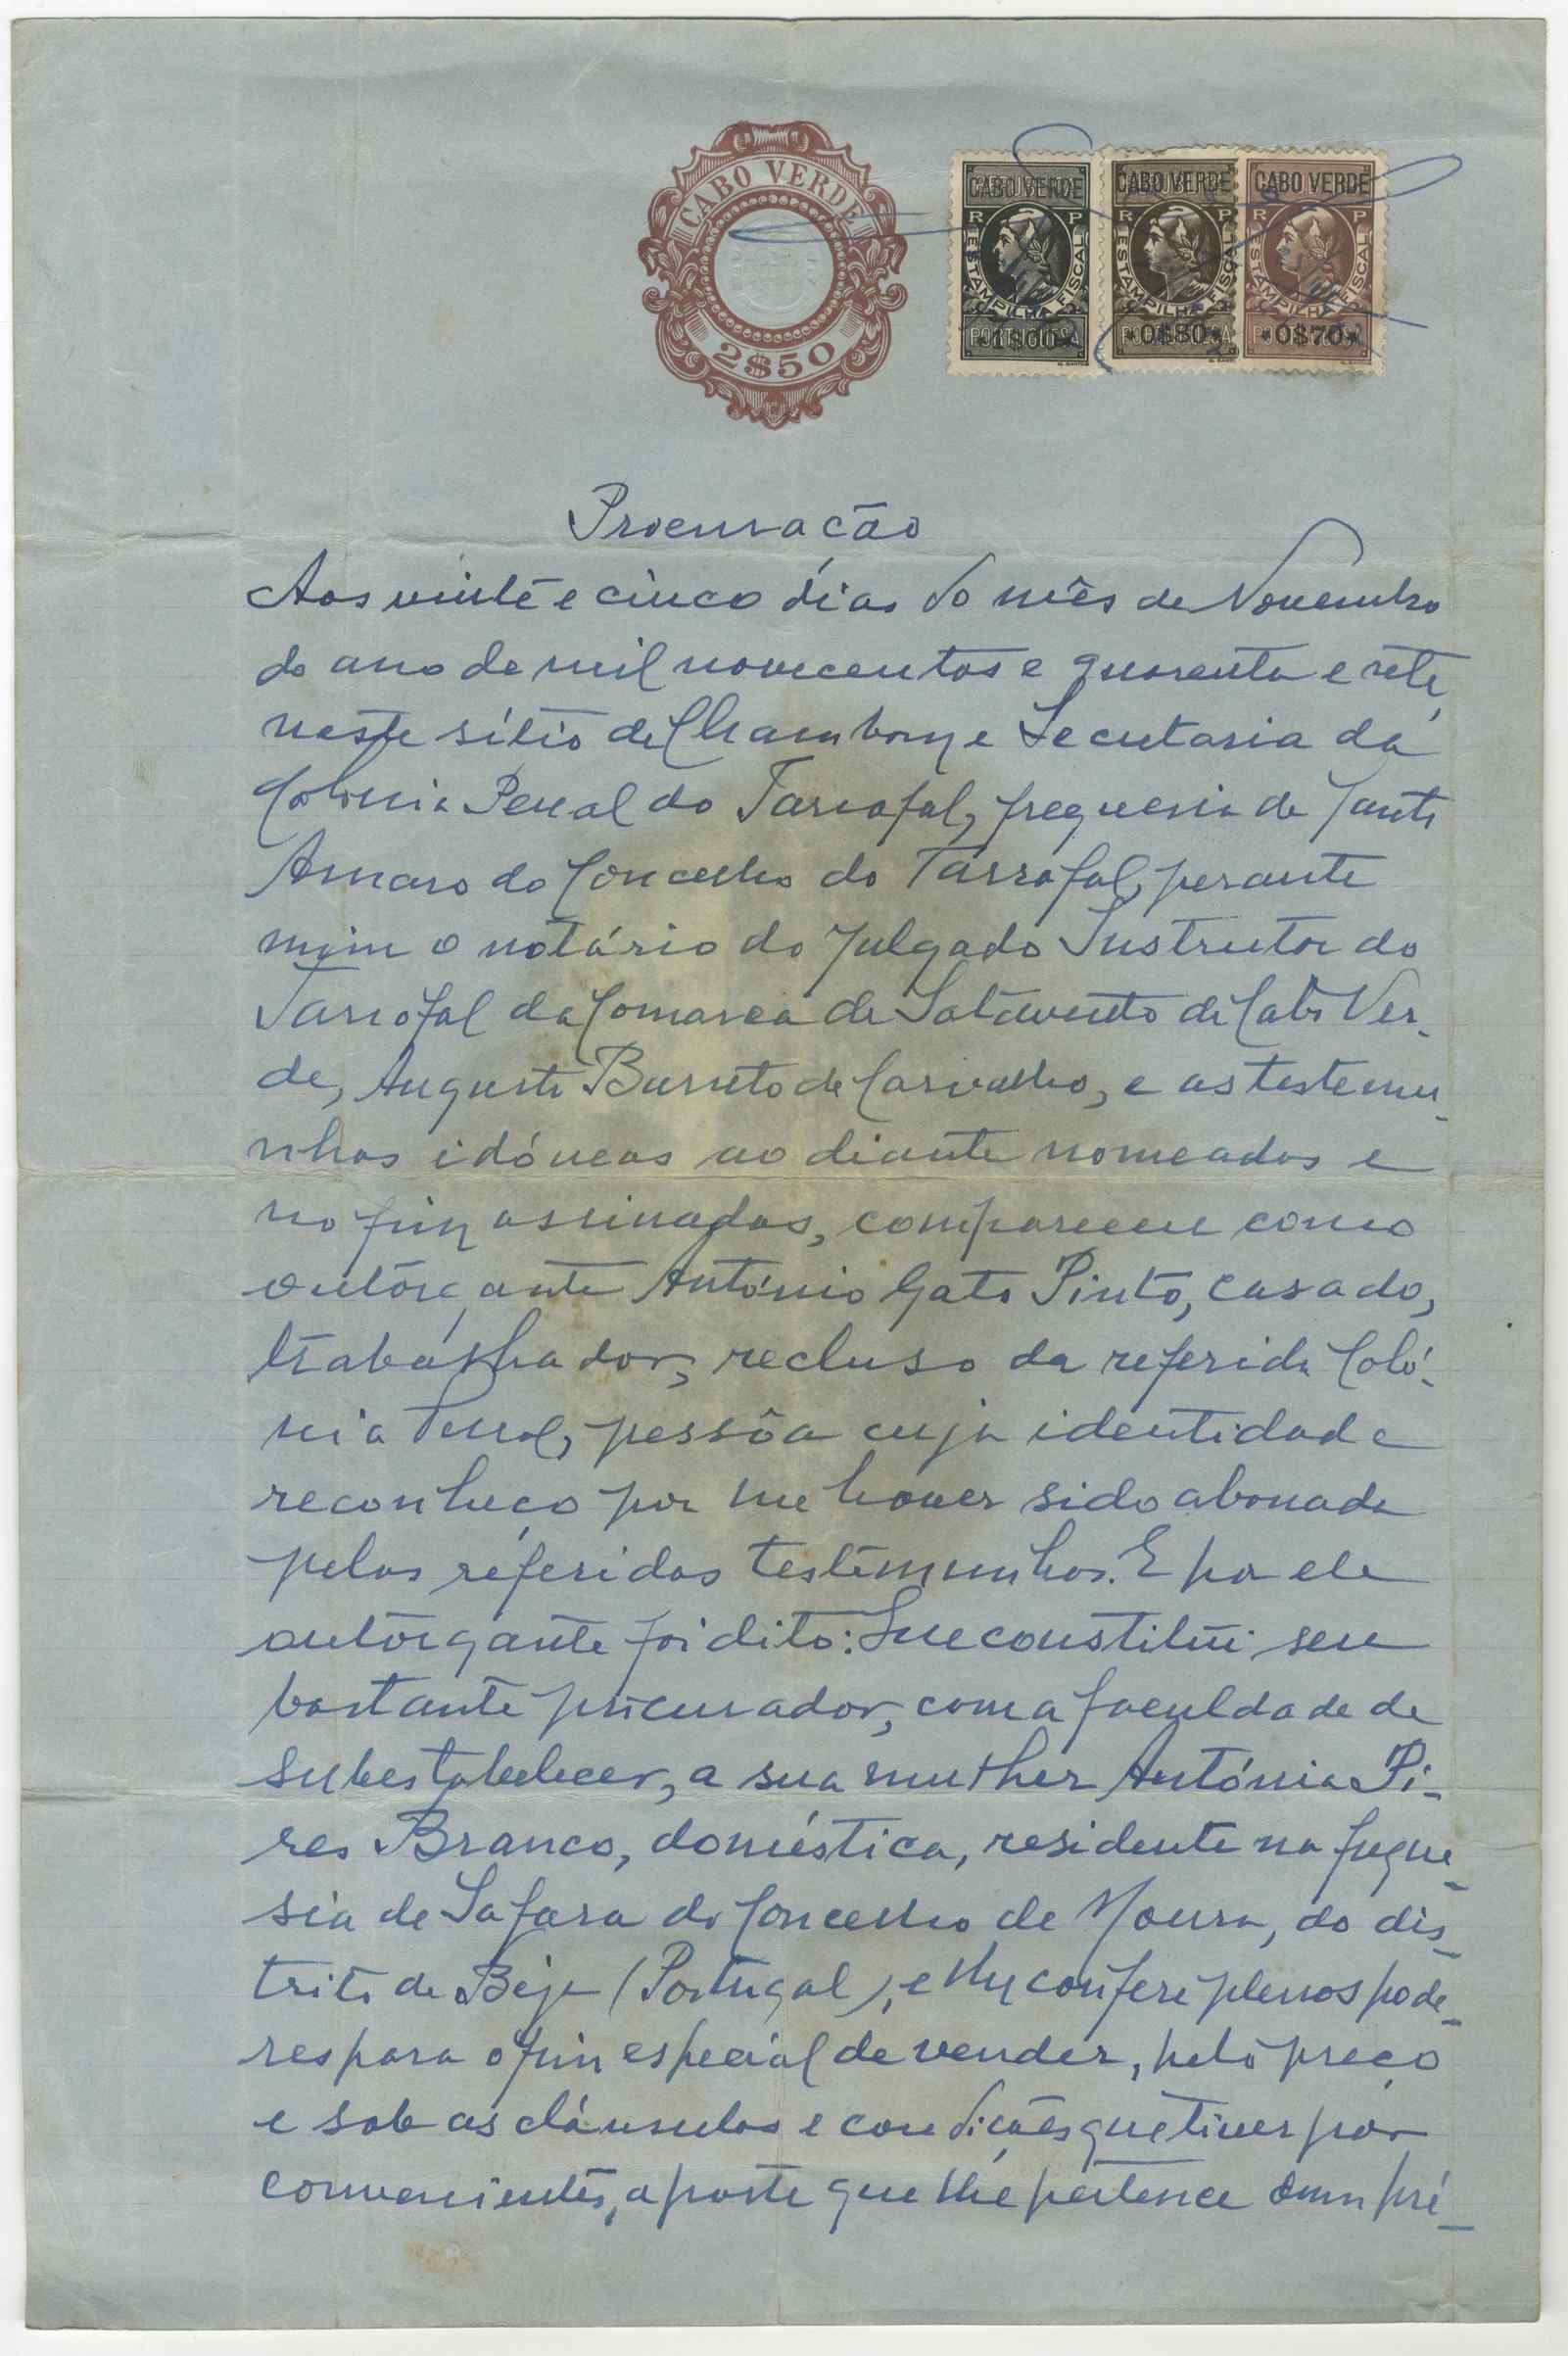 CABO VERDE
2$50
CABO VERDE
R P
ESTAMPILHA FISCAL
PORTUGUESA
*1$00*
CABO VERDE
R P
ESTAMPILHA FISCAL
*0$80*
CABO VERDE
R P
ESTAMPILHA FISCAL
*0$70*
Procuração
Aos vinte e cinco dias do mês de Novembro
do ano de mil novecentos e quarenta e sete,
neste sítio de Chambom e Secretaria da
Colonia Penal do Tarrafal, freguesia de Santo
Amaro do Concelho do Tarrafal, perante
mim o notário do Julgado Instrutor do
Tarrafal da Comarca de Sotavento de Cabo Ver-
de, Augusto Barreto de Carvalho, e as testemu-
nhas idóneas ao diante nomeadas e
no fim assinadas, compareceu como
outorgante António Gato Pinto, casado,
trabalhador, recluso da referida Coló-
nia Penal, pessôa cuja identidade
reconheço por me haver sido abonada
pelas referidas testemunhas. E por ele
outorgante foi dito: Que constitúi seu
bastante procurador, com a faculdade de
subestabelecer, a sua mulher Antónia Pi-
res Branco, doméstica, residente na fregue-
sia de Safara do Concelho de Moura, do dis-
trito de Beja (Portugal), e lhe confere plenos pode-
res para o fim especial de vender, pelo preço
e sob as cláusulas e condições que tiver por
convenientes, a parte que lhe pertence dum pré-